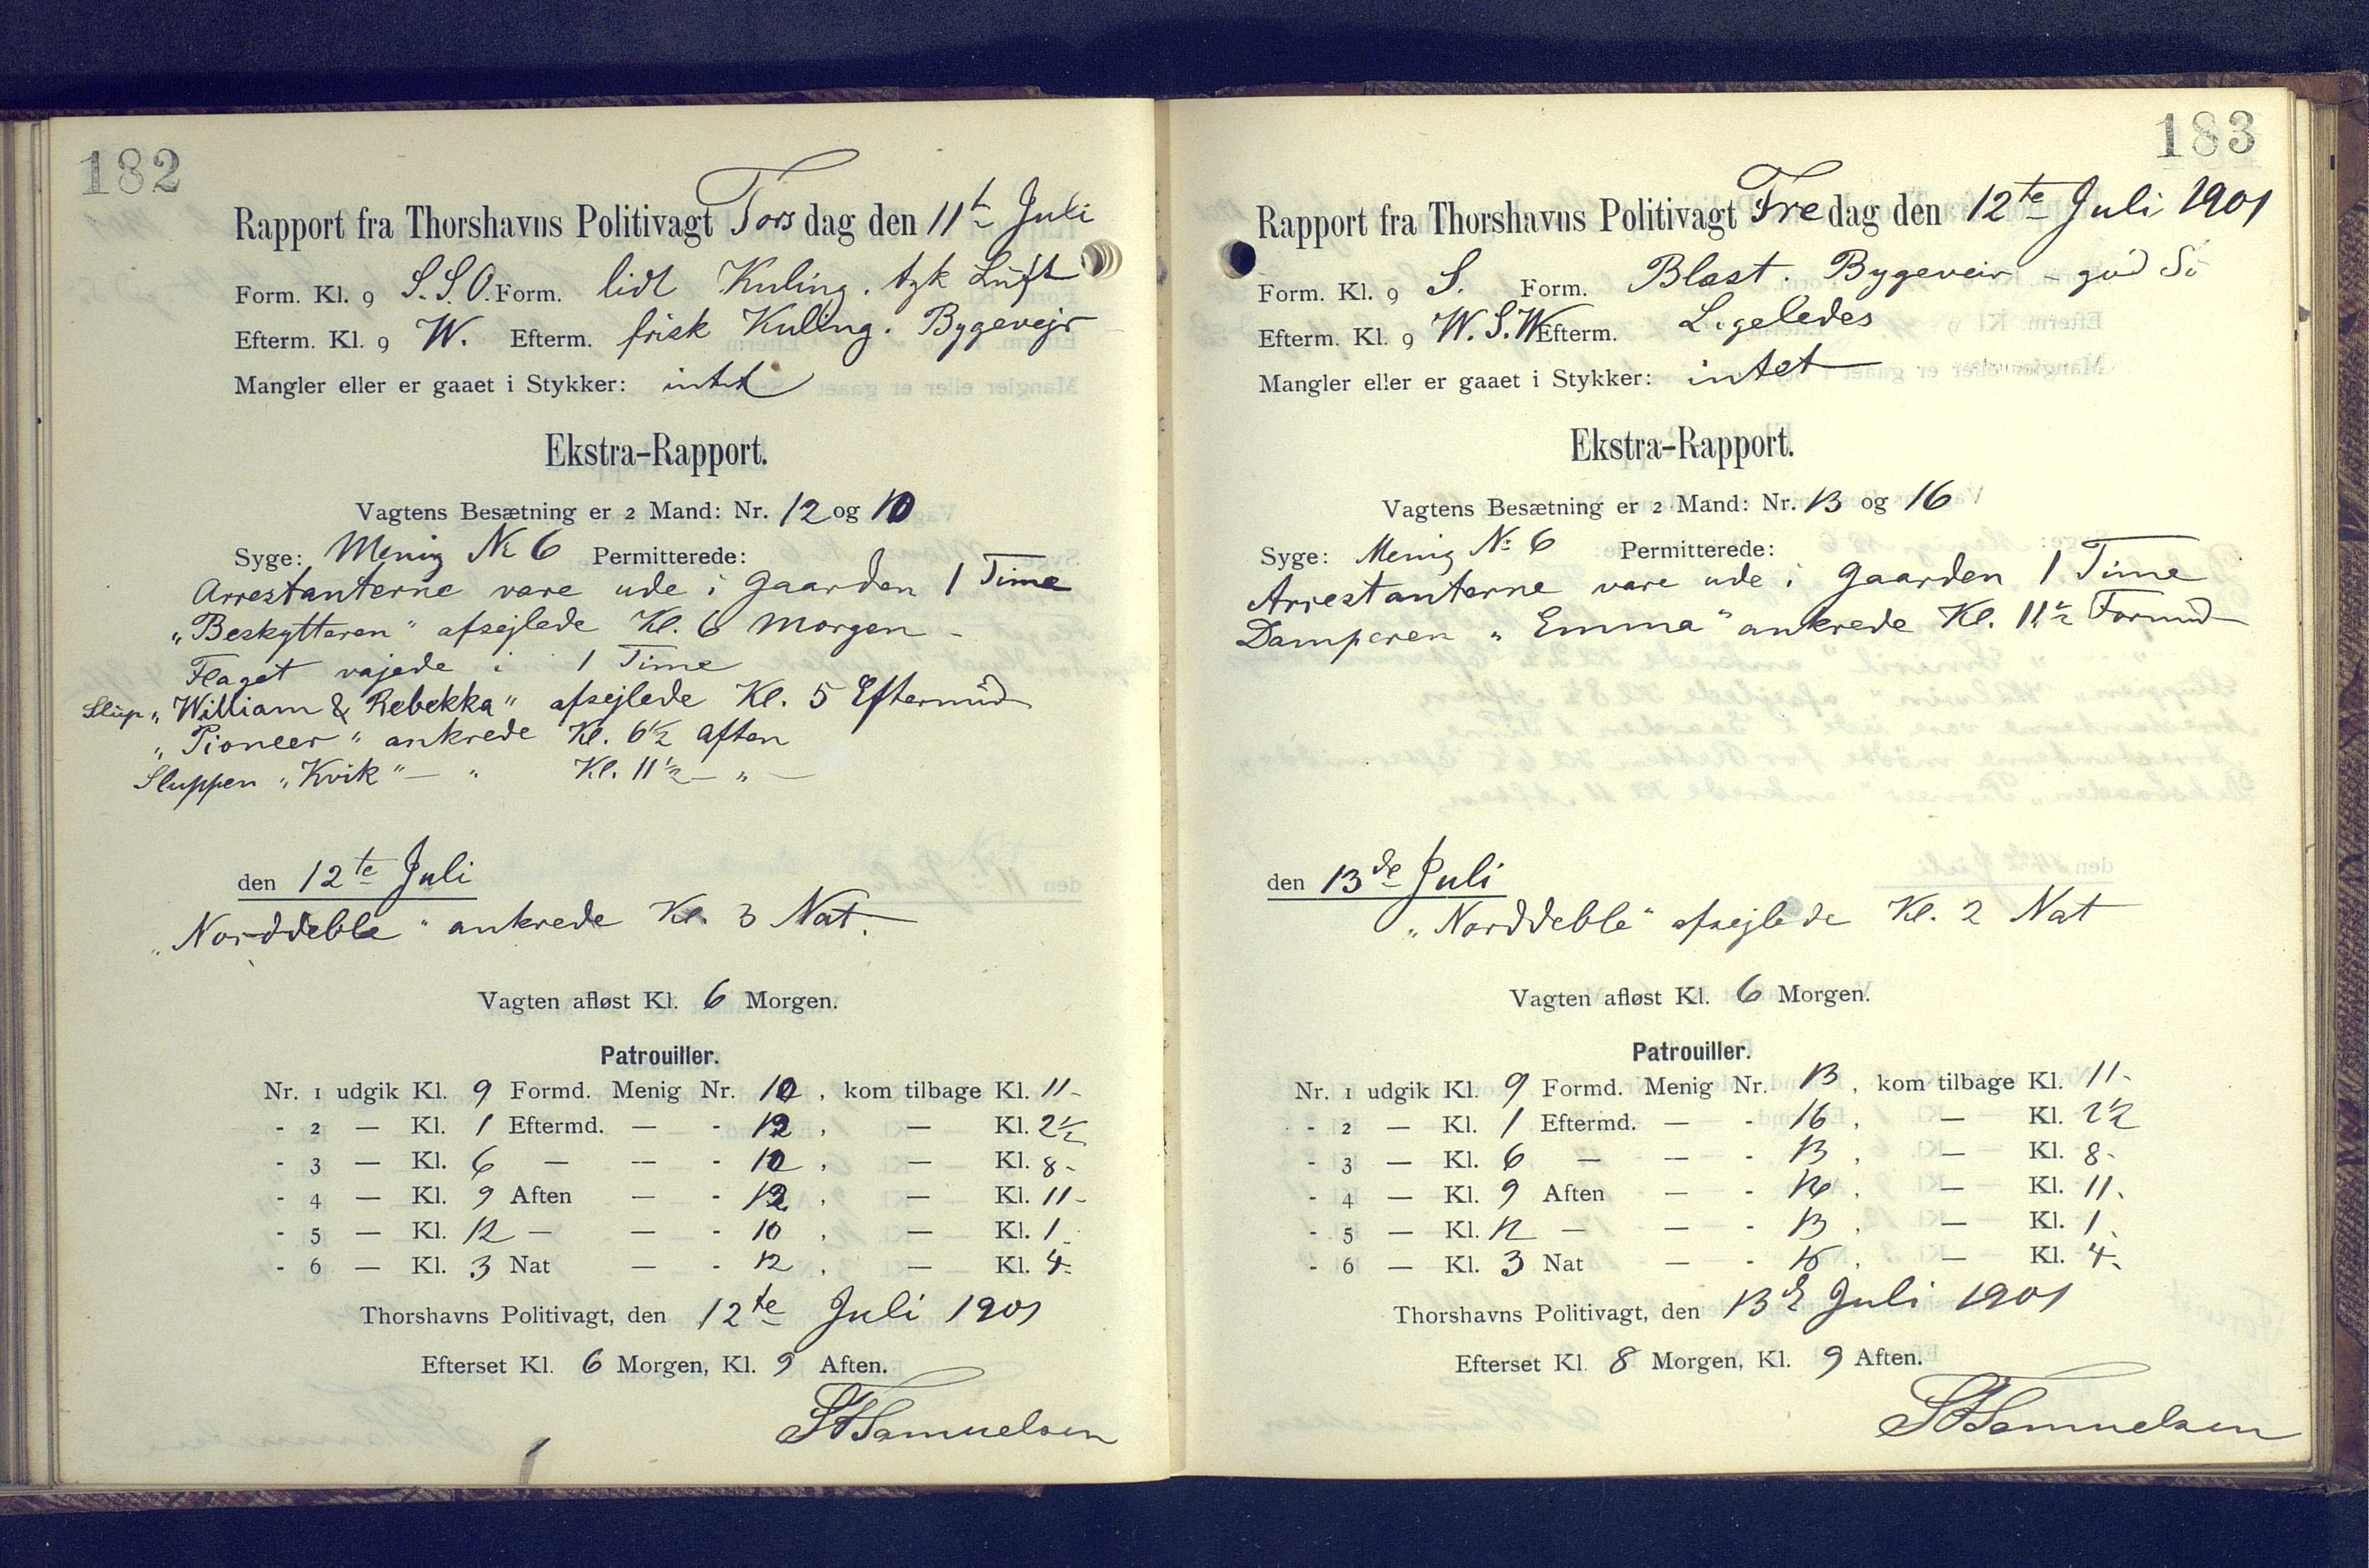 182
Rapport fra Thorshavns Politivagt Torsdag den 11t Juli
Form. Kl. 9 S.S.O. Form. lidt Kuling. tyk Luft
Efterm. Kl. 9 W. Efterm. frisk Kuling. Bygevejr
Mangler eller er gaaet i Stykker: intet
Ekstra-Rapport.
Vagtens Besætning er 2 Mand: Nr. 12 og 10
Syge: Menig Nr 6 Permitterede:
Arrestanterne vare ude i Gaarden 1 Time
„Beskytteren" afsejlede Kl. 6 Morgen -
Flaget vajede i 1 Time
Slup „William & Rebekka" afsejlede Kl. 5 Eftermid
„Pioneer" ankrede Kl. 6½ Aften
Sluppen „Kvik" — " Kl. 11½ — " —
den 12te Juli
„Norddeble" ankrede Kl. 3 Nat.
Vagten afløst Kl. 6 Morgen.
Patrouiller.
Nr. 1 udgik Kl. 9 Formd. Menig Nr. 10, kom tilbage Kl. 11-
- 2 — Kl. 1 Eftermd. — - 12, — Kl. 2½
- 3 — Kl. 6 — — - 10, — Kl. 8-
- 4 — Kl. 9 Aften — - 12, — Kl. 11-
- 5 — Kl. 12 — — - 10, — Kl. 1
- 6 — Kl. 3 Nat — - 12, — Kl. 4-
Thorshavns Politivagt, den 12te Juli 1901
Efterset Kl. 6 Morgen, Kl. 9 Aften.
Samuelsen
183
Rapport fra Thorshavns Politivagt Fredag den 12te Juli 1901
Form. Kl. 9 S. Form. Blæst. Bygeveir - god Sö
Efterm. Kl. 9 W.S.W Efterm. Ligeledes
Mangler eller er gaaet i Stykker: intet
Ekstra-Rapport.
Vagtens Besætning er 2 Mand: Nr. 13 og 16
Syge: Menig No 6 Permitterede:
Arrestanterne vare ude i Gaarden 1 Time
Damperen „Emma" ankrede Kl. 11½ Formid
den 13de Juli
„Norddeble" afsejlede Kl. 2 Nat
Vagten afløst Kl. 6 Morgen.
Patrouiller.
Nr. 1 udgik Kl. 9 Formd. Menig Nr. 13, kom tilbage Kl. 11-
- 2 — Kl. 1 Eftermd. — - 16, — Kl. 2½
- 3 — Kl. 6 — — - 13, — Kl. 8-
- 4 — Kl. 9 Aften — - 16, — Kl. 11.
- 5 — Kl. 12 — — - 13, — Kl. 1.
- 6 — Kl. 3 Nat — - 16, — Kl. 4-
Thorshavns Politivagt, den 13d Juli 1901
Efterset Kl. 8 Morgen, Kl. 9 Aften.
Samuelsen